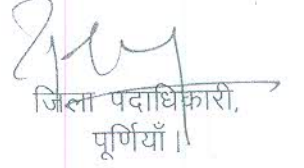 जिला पदाधिकारी,
पूर्णियाँ।